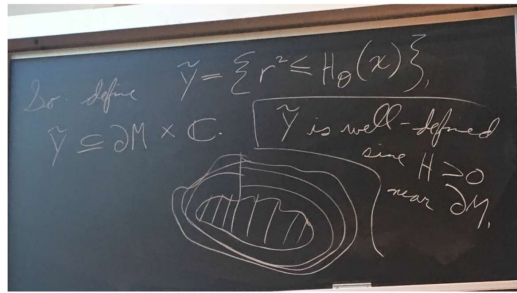 So define Ỹ = {r² ≤ H_θ(x)},
Ỹ ⊆ ∂M × ℂ.
Ỹ is well-defined
sine H > 0
near ∂M,